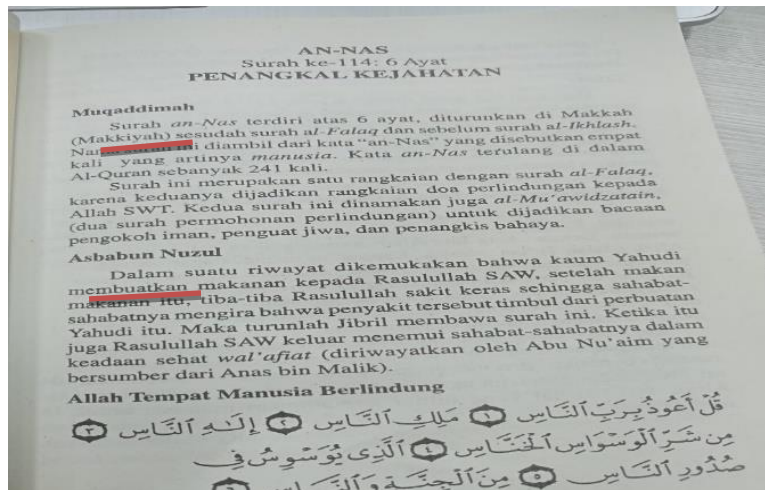 AN-NAS
Surah ke-114: 6 Ayat
PENANGKAL KEJAHATAN
Muqaddimah
Surah an-Nas terdiri atas 6 ayat, diturunkan di Makkah
(Makkiyah) sesudah surah al-Falaq dan sebelum surah al-Ikhlash.
diambil dari kata “an-Nas” yang disebutkan empat
kali yang artinya manusia. Kata an-Nas terulang di dalam
Al-Quran sebanyak 241 kali.
Surah ini merupakan satu rangkaian dengan surah al-Falaq,
karena keduanya dijadikan rangkaian doa perlindungan kepada
Allah SWT. Kedua surah ini dinamakan juga al-Mu’awidzatain,
(dua surah permohonan perlindungan) untuk dijadikan bacaan
pengokoh iman, penguat jiwa, dan penangkis bahaya.
Asbabun Nuzul
Dalam suatu riwayat dikemukakan bahwa kaum Yahudi
membuatkan makanan kepada Rasulullah SAW, setelah makan
makanan itu, tiba-tiba Rasulullah sakit keras sehingga sahabat-
sahabatnya mengira bahwa penyakit tersebut timbul dari perbuatan
Yahudi itu. Maka turunlah Jibril membawa surah ini. Ketika itu
juga Rasulullah SAW keluar menemui sahabat-sahabatnya dalam
keadaan sehat wal’afiat (diriwayatkan oleh Abu Nu’aim yang
bersumber dari Anas bin Malik).
Allah Tempat Manusia Berlindung
قُلْ أَعُوذُ بِرَبِّ ٱلنَّاسِ ١ مَلِكِ ٱلنَّاسِ ٢ إِلَٰهِ ٱلنَّاسِ ٣
مِن شَرِّ ٱلْوَسْوَاسِ ٱلْخَنَّاسِ ٤ ٱلَّذِى يُوَسْوِسُ فِى
صُدُورِ ٱلنَّاسِ ٥ مِنَ ٱلْجِنَّةِ وَٱلنَّاسِ ٦